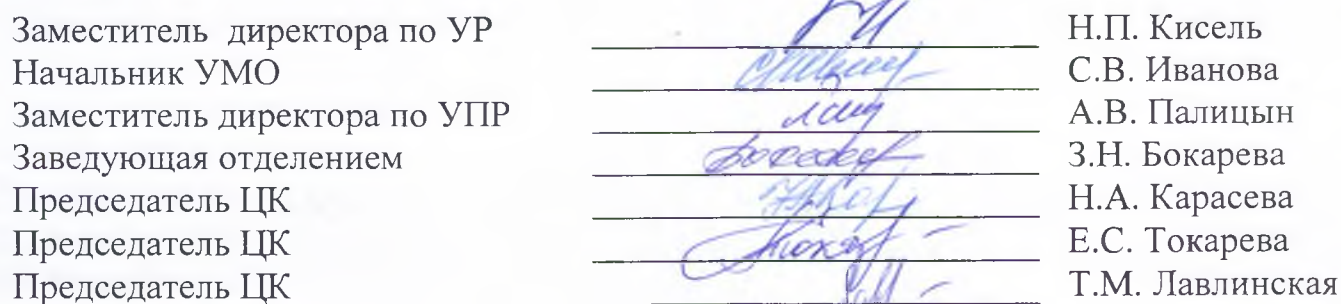 Заместитель директора по УР Н.П. Кисель
Начальник УМО С.В. Иванова
Заместитель директора по УПР А.В. Палицын
Заведующая отделением З.Н. Бокарева
Председатель ЦК Н.А. Карасева
Председатель ЦК Е.С. Токарева
Председатель ЦК Т.М. Лавлинская